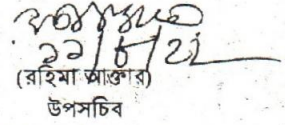 ২২/৮/২২
(রহিমা আক্তার)
উপসচিব